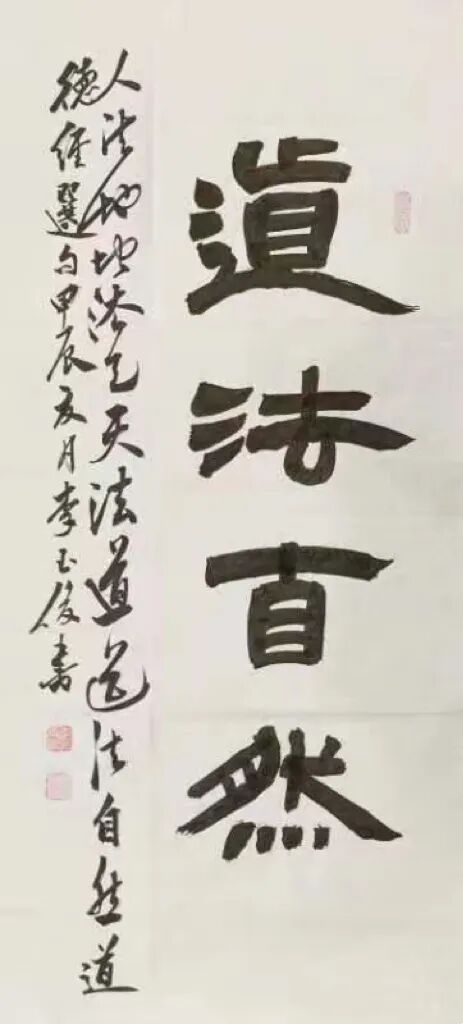 道法自然
人法地地法天天法道道法自然道
德經選句甲辰夏月李玉俊書